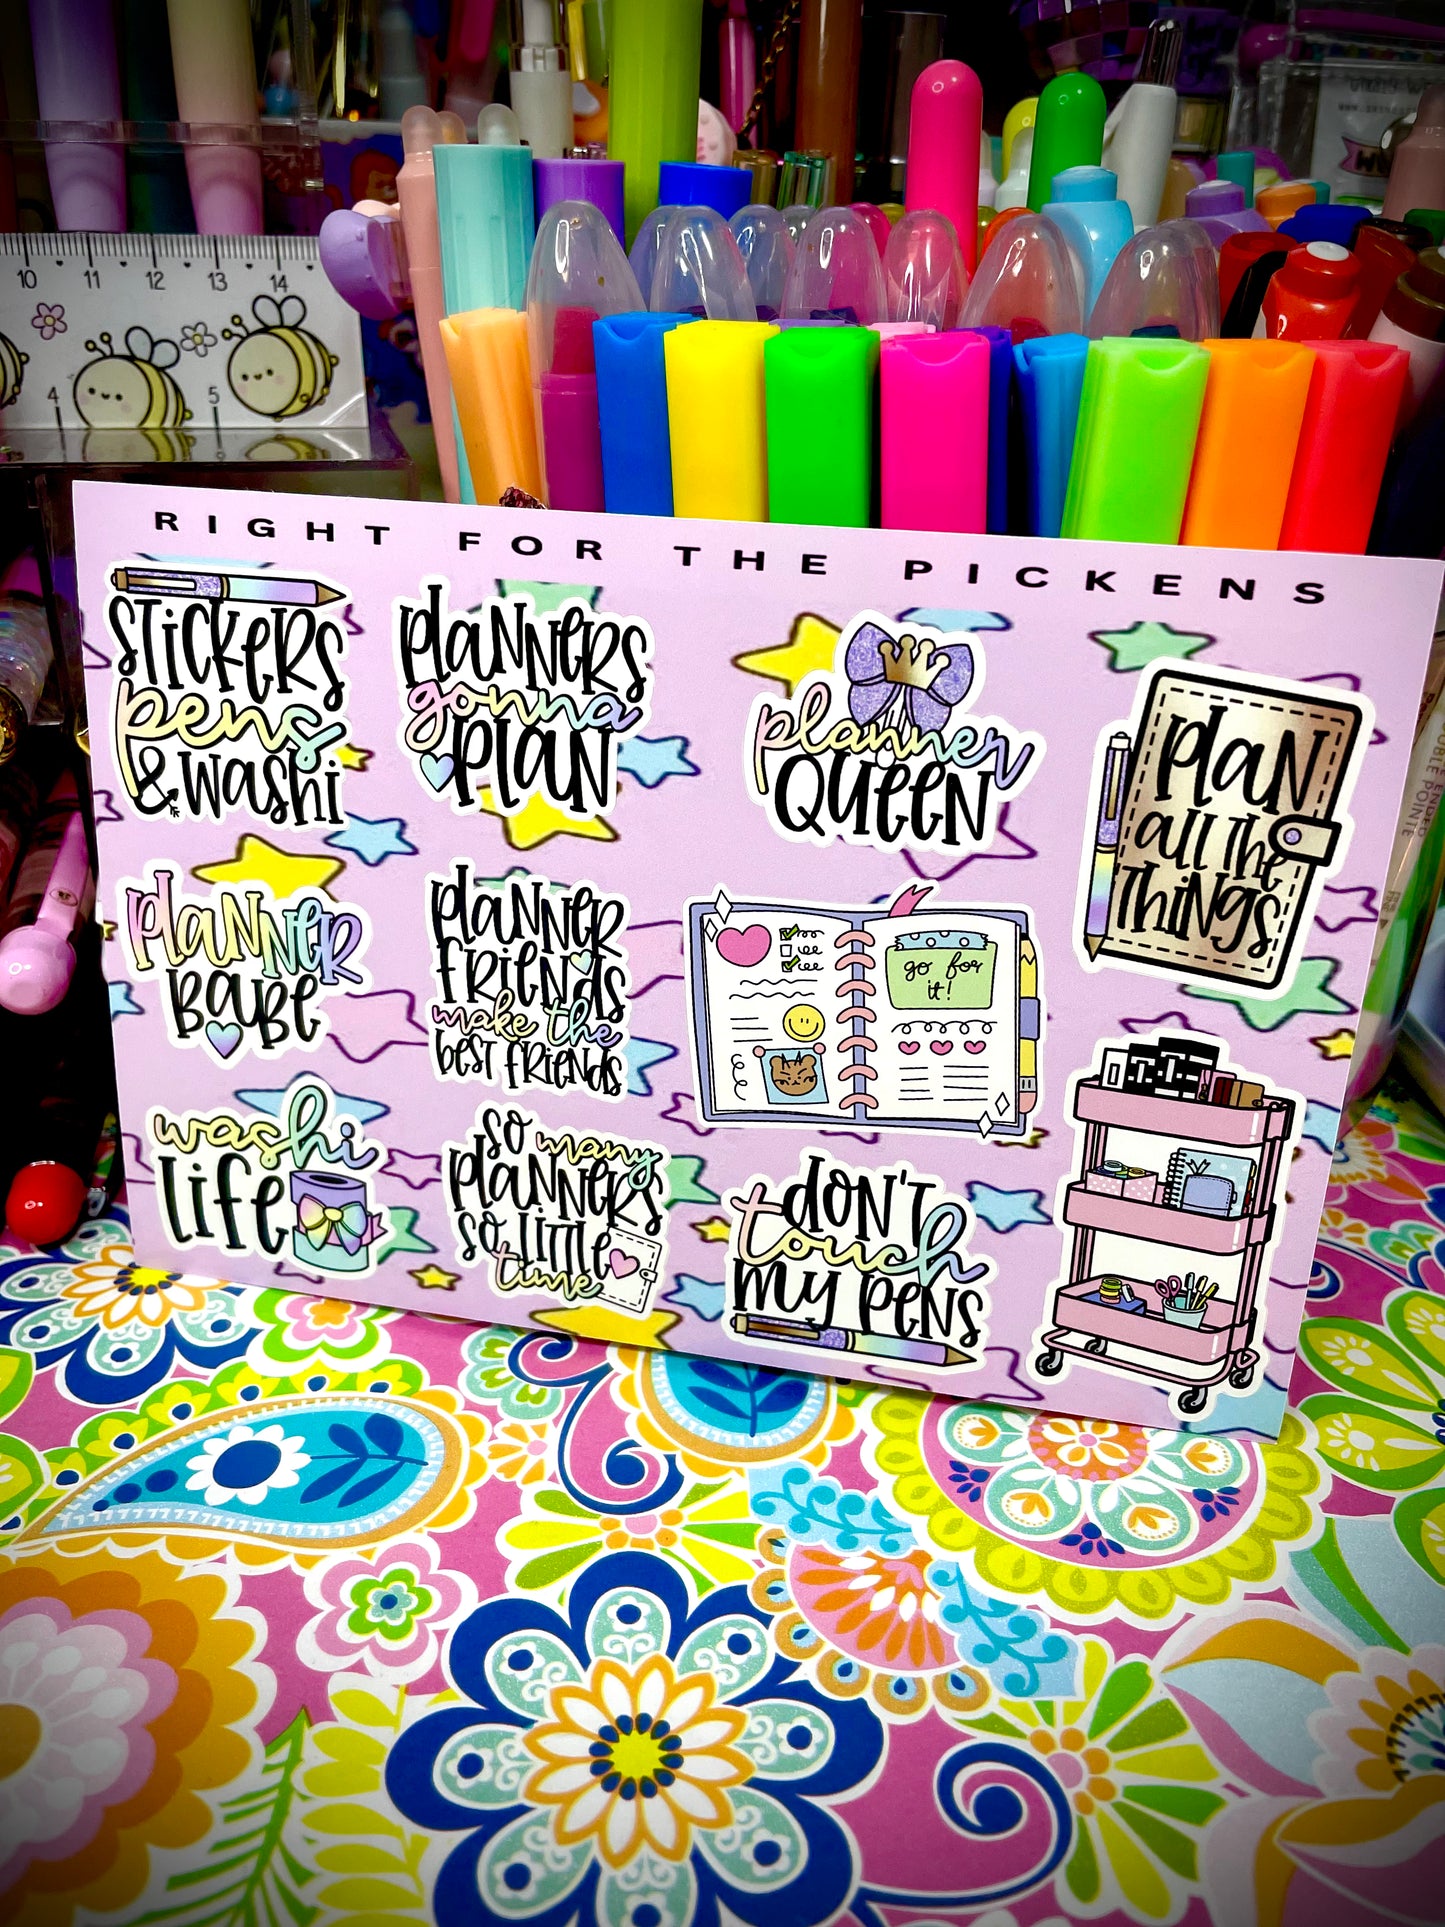 10 11 12 13 14
4 5
RIGHT FOR THE PICKENS
STICKERS
pens
& WASHI
PLANNERS
gonna
PLAN
planner
QUEEN
PLAN
all THE
THINGS
PLANNER
BABE
PLANNER
FRIENDS
make the
BEST FRIENDS
go for
it!
washi
LIFE
SO many
PLANNERS
SO LITTLE
time
DON'T
touch
MY PENS